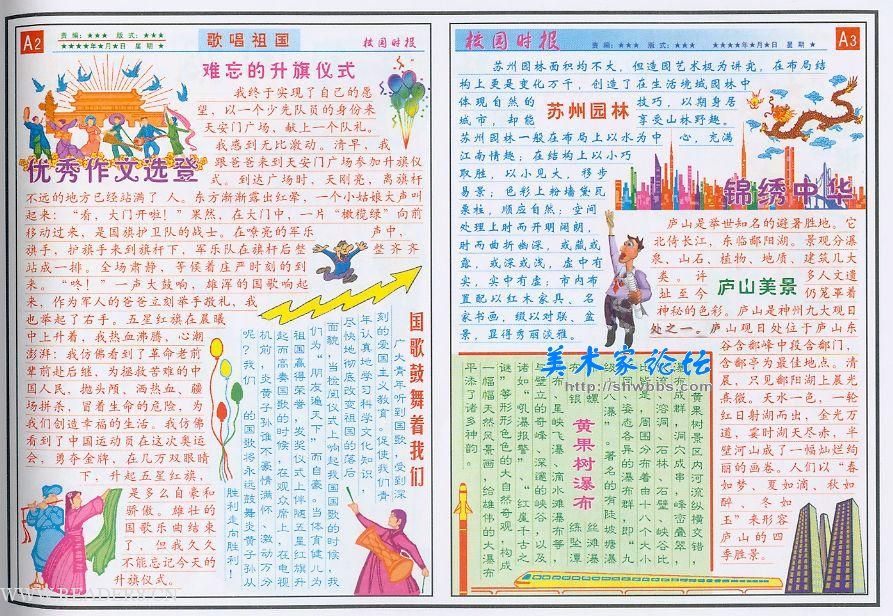 A2
责编：★★★ 版式：★★★
★★★★年★月★日 星期★
歌唱祖国
校园时报
难忘的升旗仪式
我终于实现了自己的愿
望，以一个少先队员的身份来
天安门广场，献上一个队礼。
我感到无比激动。清早，我
跟爸爸来到天安门广场参加升旗仪
式。到达广场时，天刚亮，离旗杆
优秀作文选登
不远的地方已经站满了人。东方渐渐露出红晕，一个小姑娘大声叫
起来：“看，大门开啦！”果然，在大门中，一片“橄榄绿”向前
移动过来，是国旗护卫队的战士。在嘹亮的军乐声中，
旗手，护旗手来到旗杆下，军乐队在旗杆后整整齐齐
站成一排。全场肃静，等候着庄严时刻的到
来。“咚！”一声大鼓响，雄浑的国歌响起
来，作为军人的爸爸立刻举手敬礼，我
也举起了右手。五星红旗在晨曦
中上升着，我热血沸腾，心潮
澎湃：我仿佛看到了革命老前
辈前赴后继、为拯救苦难的中
国人民、抛头颅、洒热血、疆
场拼杀，冒着生命的危险，为
我们创造幸福的生活。我仿佛
看到了中国运动员在这次奥运
会，勇夺金牌，在几万双眼睛
下，升起五星红旗，
是多么自豪和
骄傲。雄壮的
国歌乐曲结束
了，但我久久
不能忘记今天的
升旗仪式。
国歌鼓舞着我们
广大青年听到国歌，受到深
刻的爱国主义教育。促使我们青
年认真地学习科学文化知识，
尽快地彻底改变祖国的落后
面貌，当检阅仪式上响起我国国歌的时候，我
们为“朋友遍天下”而自豪。当体育健儿为
祖国赢得荣誉，发奖仪式上伴随五星红旗升
起而高奏国歌的时候，在观众席上，在电视
机前，炎黄子孙谁不豪情满怀、激动万分
呢？我们的国歌将永远鼓舞炎黄子孙从
胜利走向胜利！
校园时报
责编：★★★ 版式：★★★
★★★★年★月★日 星期★
A3
苏州园林面积均不大，但造园艺术极为讲究，在布局结
构上更是变化万千，创造了在生活境域园林中
体现自然的技巧，以期身居
城市，却能享受山林野趣。
苏州园林
苏州园林一般在布局上以水为中心，充满
江南情趣；在结构上以小巧
取胜，以小见大，移步
易景；色彩上粉墙黛瓦
栗柱，顺应自然；空间
处理上时而开明阔朗，
时而曲折幽深，或藏或
露，或深或浅，虚中有
实，实中有虚；市内布
置配以红木家具、名
家书画，缀以对联、盆
景，显得秀丽淡雅。
锦绣中华
庐山是举世知名的避暑胜地。它
北倚长江，东临鄱阳湖。景观分瀑
泉、山石、植物、地质、建筑几大
类。许多人文遗
址至今仍笼罩着
庐山美景
神秘的色彩。庐山是神州九大观日
处之一。庐山观日处位于庐山东
谷含鄱峰中段含鄱门，
含鄱亭为最佳地点。清
晨，只见鄱阳湖上晨光
熹微。天水一色，一轮
红日射湖而出，金光万
道，霎时湖天尽赤，半
壁河山成了一幅灿烂绚
丽的画卷。人们以“春
如梦、夏如滴、秋如
醉、冬如
玉”来形容
庐山的四
季胜景。
美术家论坛
http://shwbbs.com
黄果树瀑布
黄果树景区内河流纵横交错，
瀑布成群，洞穴成串，峰峦叠翠，
比比是，周围分布着由十八个大小
不同，姿态各异的瀑布群，即“九
级八瀑”。著名的有陡坡塘瀑
WWW.READERY.CN